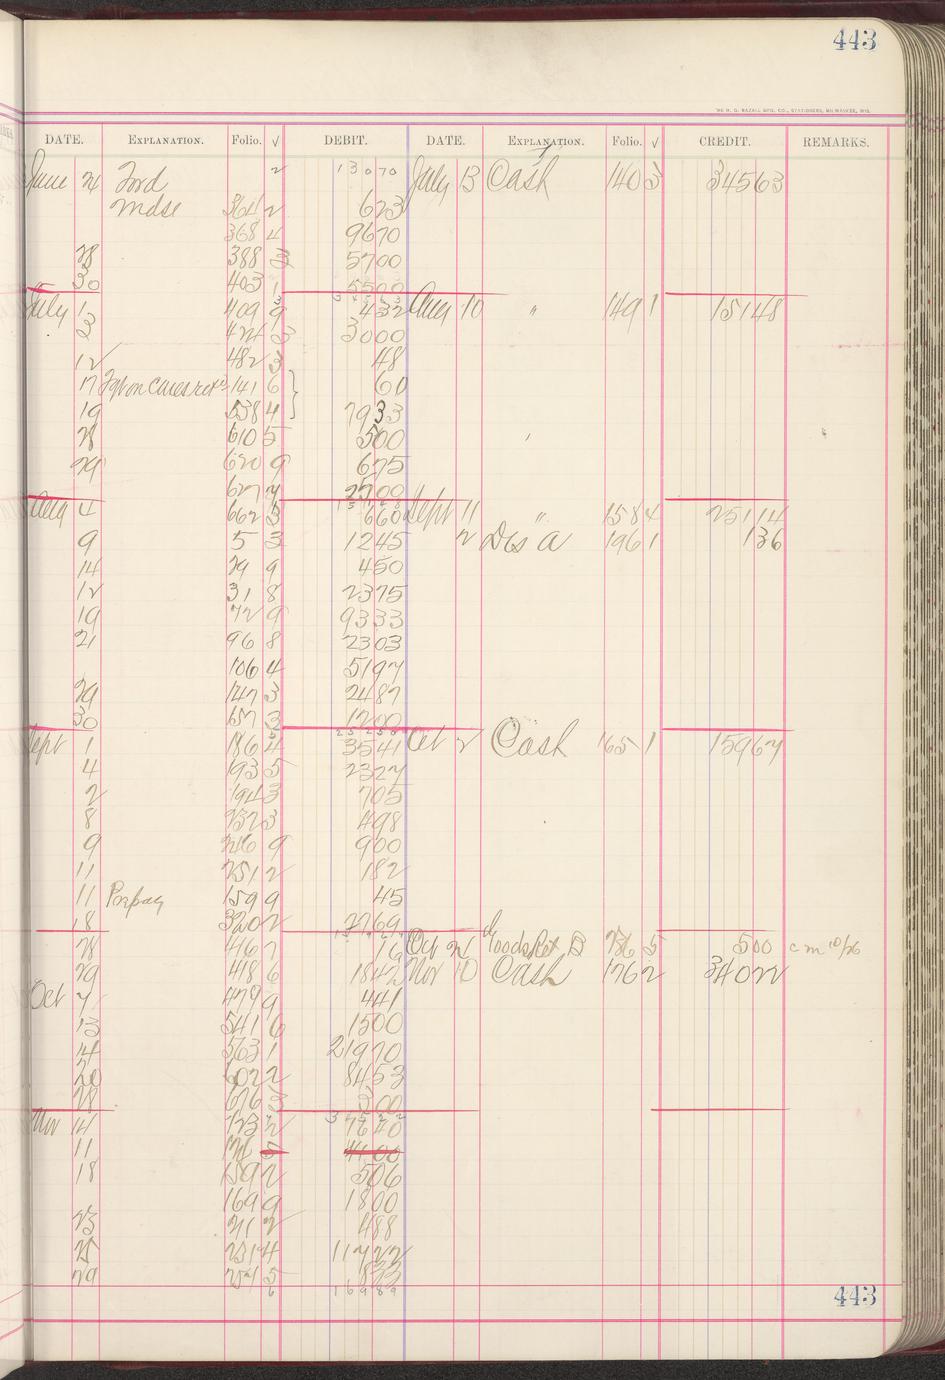 443
THE H. G. RAZALL MFG. CO., STATIONERS, MILWAUKEE, WIS.
DATE. EXPLANATION. Folio. √ DEBIT. DATE. EXPLANATION. Folio. √ CREDIT. REMARKS.
June 24 Ford 2 13070 July 13 Cash 140 3 34563
Mdse 364 2 623
368 4 9670
28 388 3 5700
30 403 1 5500
July 1 409 9 432 Aug 10 " 149 1 15148
3 424 3 3000
12 482 3 48
17 141 6 60
19 538 4 7933
28 610 5 500
29 620 9 675
627 7 2700
Aug 4 662 5 660 Sept 11 " 158 4 25114
9 5 3 1245 2 Dis a 196 1 136
14 29 9 450
12 31 8 2375
19 72 9 9333
21 96 8 2303
106 4 5197
29 147 3 2487
30 157 3 1200
Sept 1 186 4 3541 Oct 2 Cash 165 1 15967
4 193 5 2327
2 194 3 705
8 232 3 498
9 246 9 900
11 251 2 182
11 159 9 45
18 320 2 7769
28 416 7 16 Oct 26 Goods Ret B 286 5 500 cm 10/26
29 418 6 1842 Nov 10 Cash 176 2 34022
Oct 7 479 9 441
13 541 6 1500
14 563 1 21970
20 602 2 8453
28 676 3 300
Nov 4 123 2 7640
11 4100
18 159 2 506
169 9 1800
23 211 2 488
25 231 4 11722
29 254 5
6 16989
443